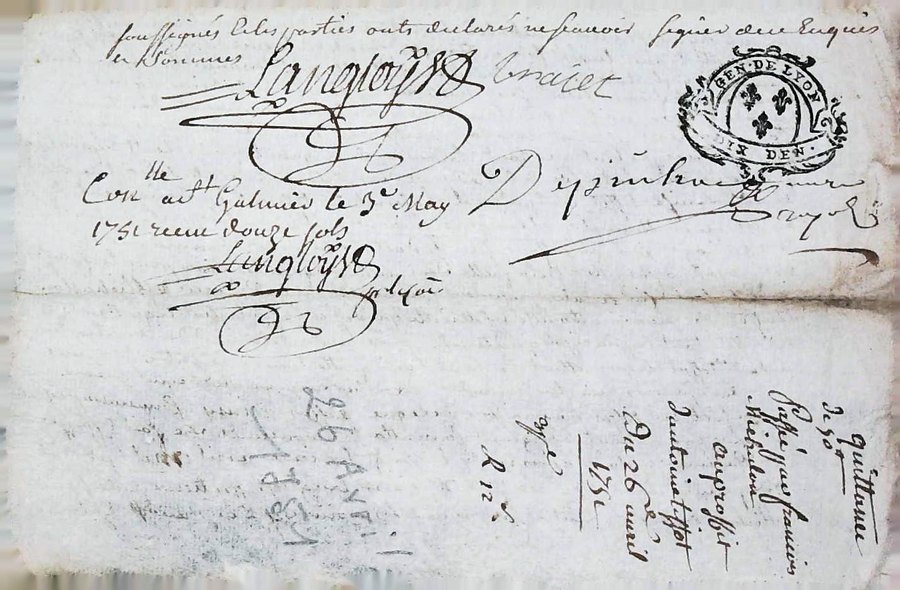 soussignés et les parties onts déclarés ne scavoir signer de ce Enquis
et Sommés
Langloys
GEN · DE LYON
DIX DEN ·
Conlle a St Galmier le 3e May
1751 receu douze sols
Langloys
quittance
de 50 lt
Passé par francois
Michalon
au proffit
d'antoine tissot
Du 26e avril
1751
R 12 s
26 Avril
1751